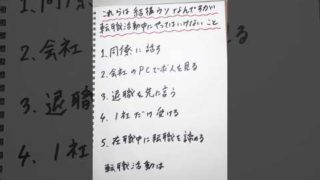 これらは結構
転職活動中にやってはいけないこと
1. 同僚に話す
2. 会社のPCで求人を見る
3. 退職を先に言う
4. 1社だけ受ける
5. 在職中に転職を諦める
転職活動は